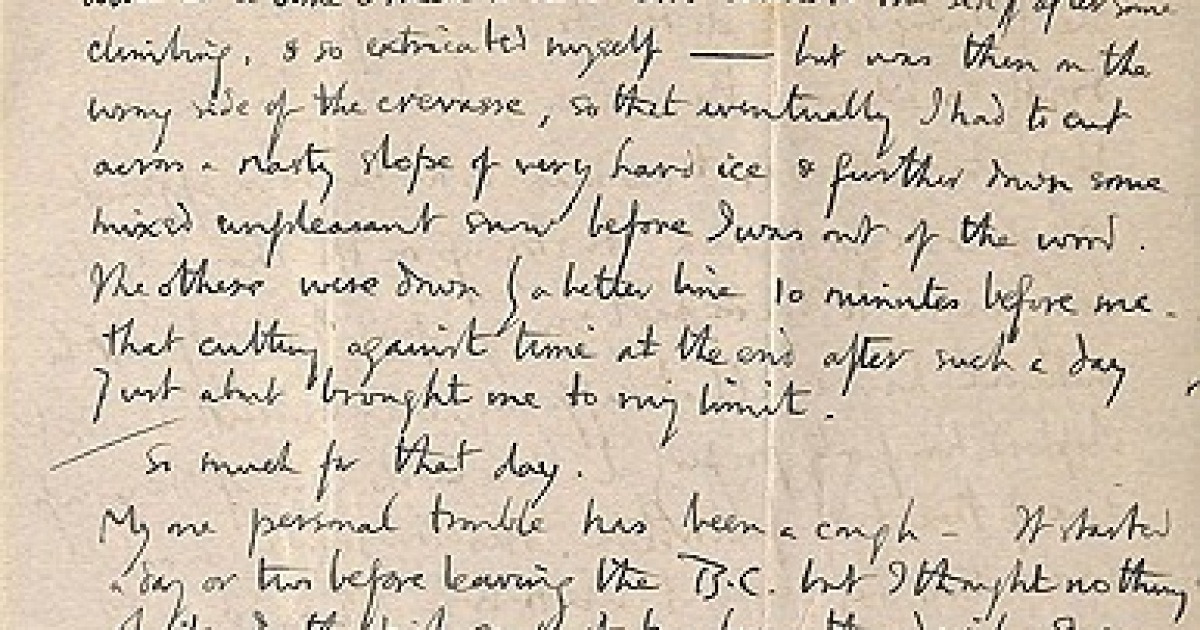 after some
climbing, & so extricated myself — but was then on the
wrong side of the crevasse, so that eventually I had to cut
across a nasty slope of very hard ice & further down some
mixed unpleasant snow before I was out of the wood.
The others were down by a better line 10 minutes before me.
that cutting against time at the end after such a day
Just about brought me to my limit.
So much for that day.
My one personal trouble has been a cough - It started
a day or two before leaving the B.C. but I thought nothing